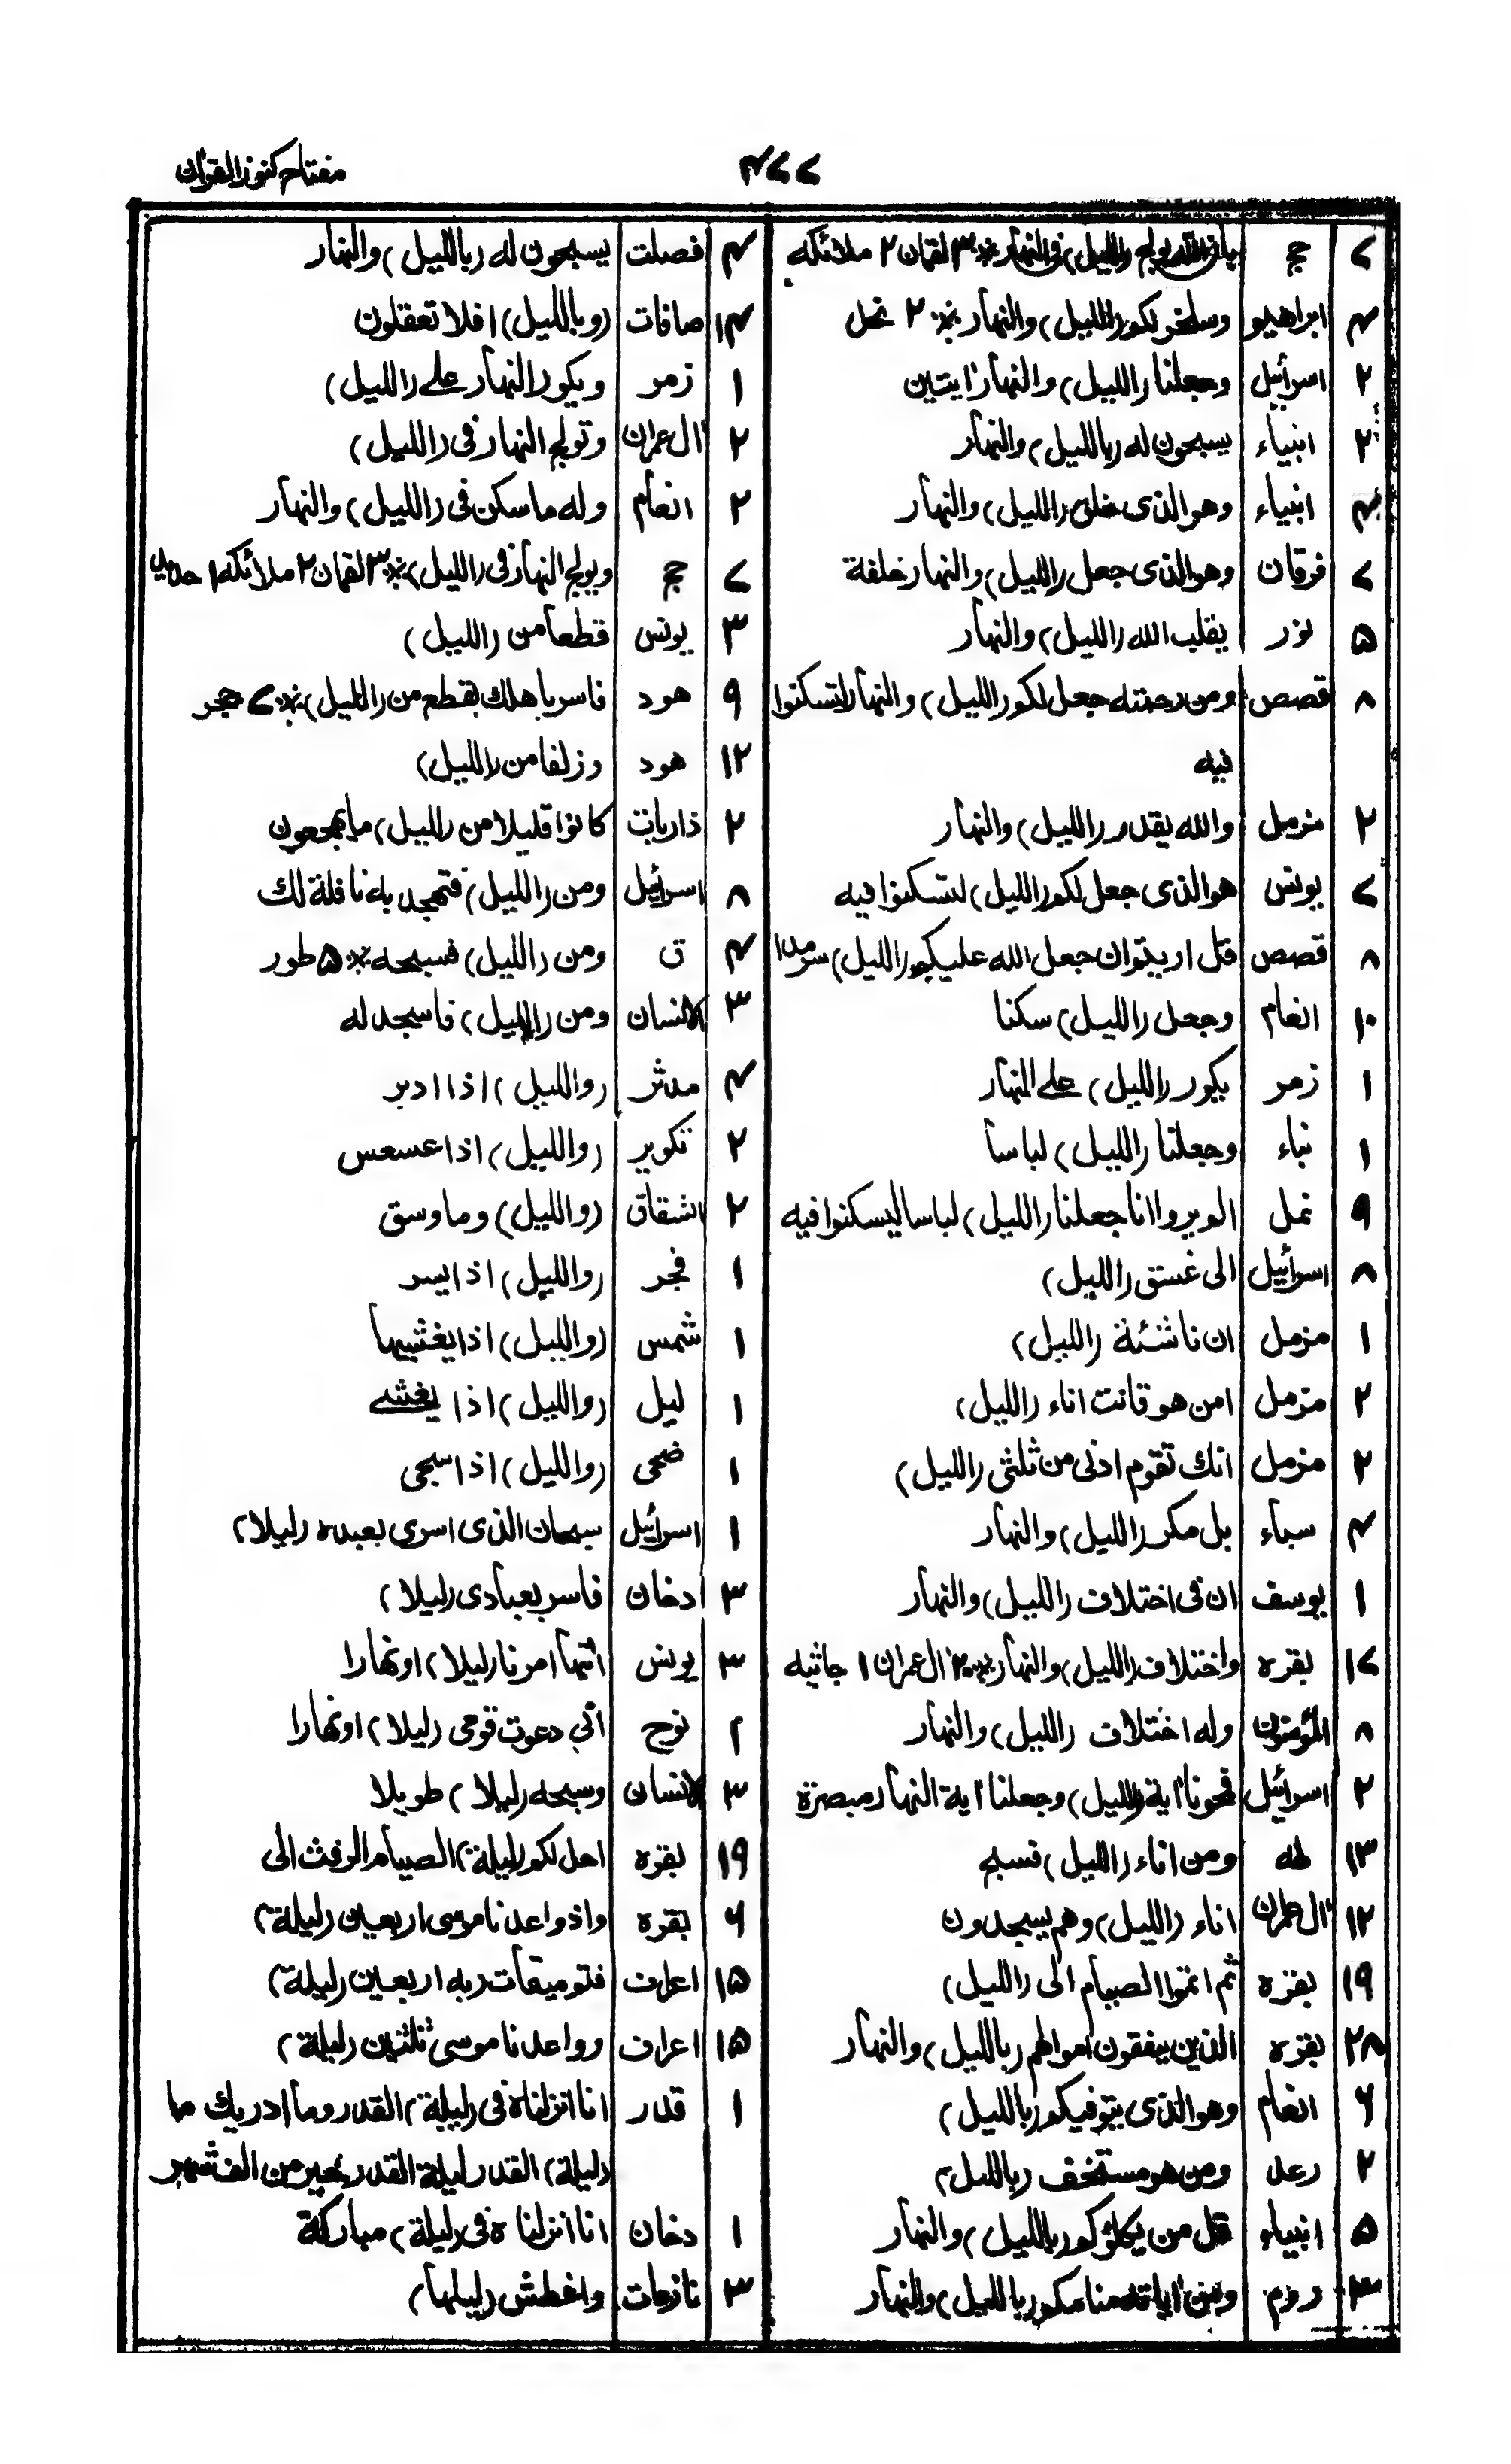 مفتاح كنوز القرآن
۴۷۷
۷ حج بان الله يولج (الليل) فى النهار ٪ ۳ لقمان ۲ ملائكه
۴ ابراهيم وسخر لكم (الليل) والنهار ٪ ۲ نحل
۲ اسرائيل وجعلنا (الليل) والنهار اٰيتين
۲ انبياء يسبحون له (بالليل) والنهار
انبياء وهو الذى خلق (الليل) والنهار
۷ فرقان وهو الذى جعل (الليل) والنهار خلفة
۵ نور يقلب الله (الليل) والنهار
۸ قصص ومن رحمته جعل لكم (الليل) والنهار لتسكنوا
فيه
۲ مزمل والله يقدر (الليل) والنهار
۷ يونس هو الذى جعل لكم (الليل) لتسكنوا فيه
۸ قصص قل ارءيتم ان جعل الله عليكم (الليل) سرمدا
۱۰ انعام وجعل (الليل) سكنا
۱ زمر يكور (الليل) على النهار
۱ نباء وجعلنا (الليل) لباسا
۹ نمل الم يروا انا جعلنا (الليل) لباسا ليسكنوا فيه
۸ اسرائيل الى غسق (الليل)
۱ مزمل ان ناشئة (الليل)
۲ مزمل امن هو قانت اناء (الليل)
۲ مزمل انك تقوم ادنى من ثلثى (الليل)
۴ سباء بل مكر (الليل) والنهار
۱ يوسف ان فى اختلاف (الليل) والنهار
۱۷ بقره واختلاف (الليل) والنهار ٪ ۲۰ اٰل عمران ۱ جاثيه
۸ المؤمنون وله اختلاف (الليل) والنهار
۲ اسرائيل فمحونا اٰية (الليل) وجعلنا اٰية النهار مبصرة
۱۳ طه ومن اناء (الليل) فسبح
۱۲ اٰل عمران اناء (الليل) وهم يسجدون
۱۹ بقره ثم اتموا الصيام الى (الليل)
۲۸ بقره الذين ينفقون اموالهم (بالليل) والنهار
۶ انعام وهو الذى يتوفيكم (بالليل)
۲ رعد ومن هو مستخف (بالليل)
۵ انبياء قل من يكلؤكم (بالليل) والنهار
۳ روم ومن اٰياته منامكم (بالليل) والنهار
۴ فصلت يسبحون له (بالليل) والنهار
۱۴ صافات (وبالليل) افلا تعقلون
۱ زمر ويكور النهار على (الليل)
۲ اٰل عمران وتولج النهار فى (الليل)
۲ انعام وله ما سكن فى (الليل) والنهار
۷ حج ويولج النهار فى (الليل) ٪ ۳ لقمان ۲ ملائكه ۱ حديد
۳ يونس قطعا من (الليل)
۹ هود فاسر باهلك بقطع من (الليل) ٪ ۷ حجر
۱۲ هود وزلفا من (الليل)
۲ ذاريات كانوا قليلا من (الليل) ما يهجعون
۸ اسرائيل ومن (الليل) فتهجد به نافلة لك
۴ ق ومن (الليل) فسبحه ٪ ۵ طور
۳ الانسان ومن (الليل) فاسجد له
۴ مدثر (والليل) اذا ادبر
۲ تكوير (والليل) اذا عسعس
۲ انشقاق (والليل) وما وسق
۱ فجر (والليل) اذا يسر
۱ شمس (والليل) اذا يغشيها
۱ ليل (والليل) اذا يغشى
۱ ضحى (والليل) اذا سجى
۱ اسرائيل سبحان الذى اسرى بعبده (ليلا)
۳ دخان فاسر بعبادى (ليلا)
۳ يونس اتٰيها امرنا (ليلا) او نهارا
۲ نوح انى دعوت قومى (ليلا) او نهارا
۳ الانسان وسبحه (ليلا) طويلا
۱۹ بقره احل لكم (ليلة) الصيام الرفث الى
۶ بقره واذ واعدنا موسى اربعين (ليلة)
۱۵ اعراف فتم ميقات ربه اربعين (ليلة)
۱۵ اعراف وواعدنا موسى ثلثين (ليلة)
۱ قدر انا انزلناه فى (ليلة) القدر وما ادريك ما
(ليلة) القدر ليلة القدر خير من الف شهر
۱ دخان انا انزلناه فى (ليلة) مباركة
۳ نازعات واغطش (ليلها)